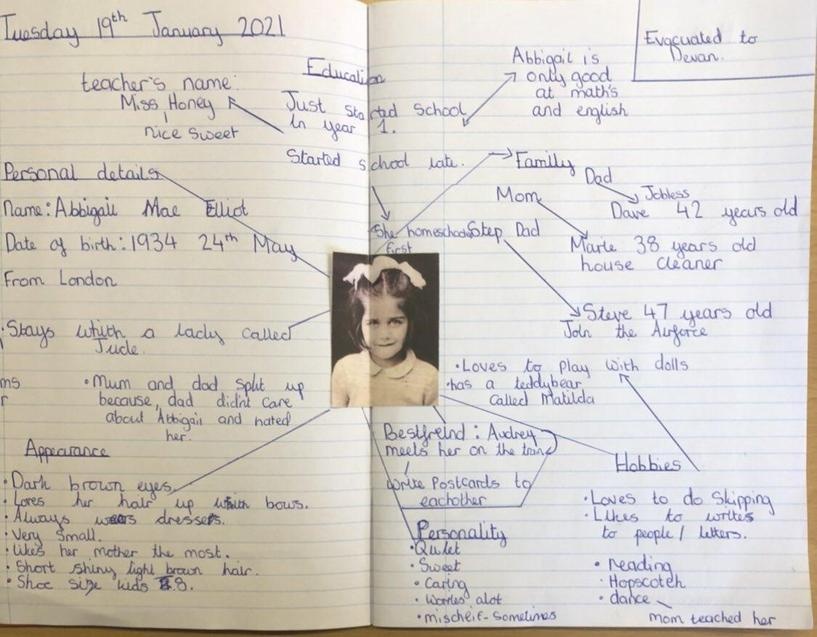 Tuesday 19th January 2021
Education
teacher's name:
Miss Honey
nice sweet
Just started School
in year 1.
Started school late.
She homeschools
first
Abbigail is
only good
at math's
and english
Evacuated to
Devan.
Personal details
Name: Abbigail Mae Elliot
Date of birth: 1934 24th May
From London
Stays whith a lady called
Jude.
ms
r
• Mum and dad split up
because, dad didn't care
about Abbigail and hated
her.
Family
Dad
Jobless
Dave 42 years old
Mom
Marie 38 years old
house cleaner
Step Dad
Steve 47 years old
Join the Airforce
• Loves to play with dolls
• has a teddybear
called Matilda
Bestfreind: Audrey
meets her on the train
write Postcards to
eachother
Appearance
• Dark brown eyes
• Loves her hair up whith bows.
• Always wears dresses.
• Very small.
• Likes her mother the most.
• Short shiny light brown hair.
• Shoe size kids 8.
Personality
• Quiet
• Sweet
• Caring
• Worries alot
• mischeif - sometimes
Hobbies
• Loves to do Skipping
• Likes to writes
to people / letters.
• Reading
• Hopscotch
• dance
mom teached her